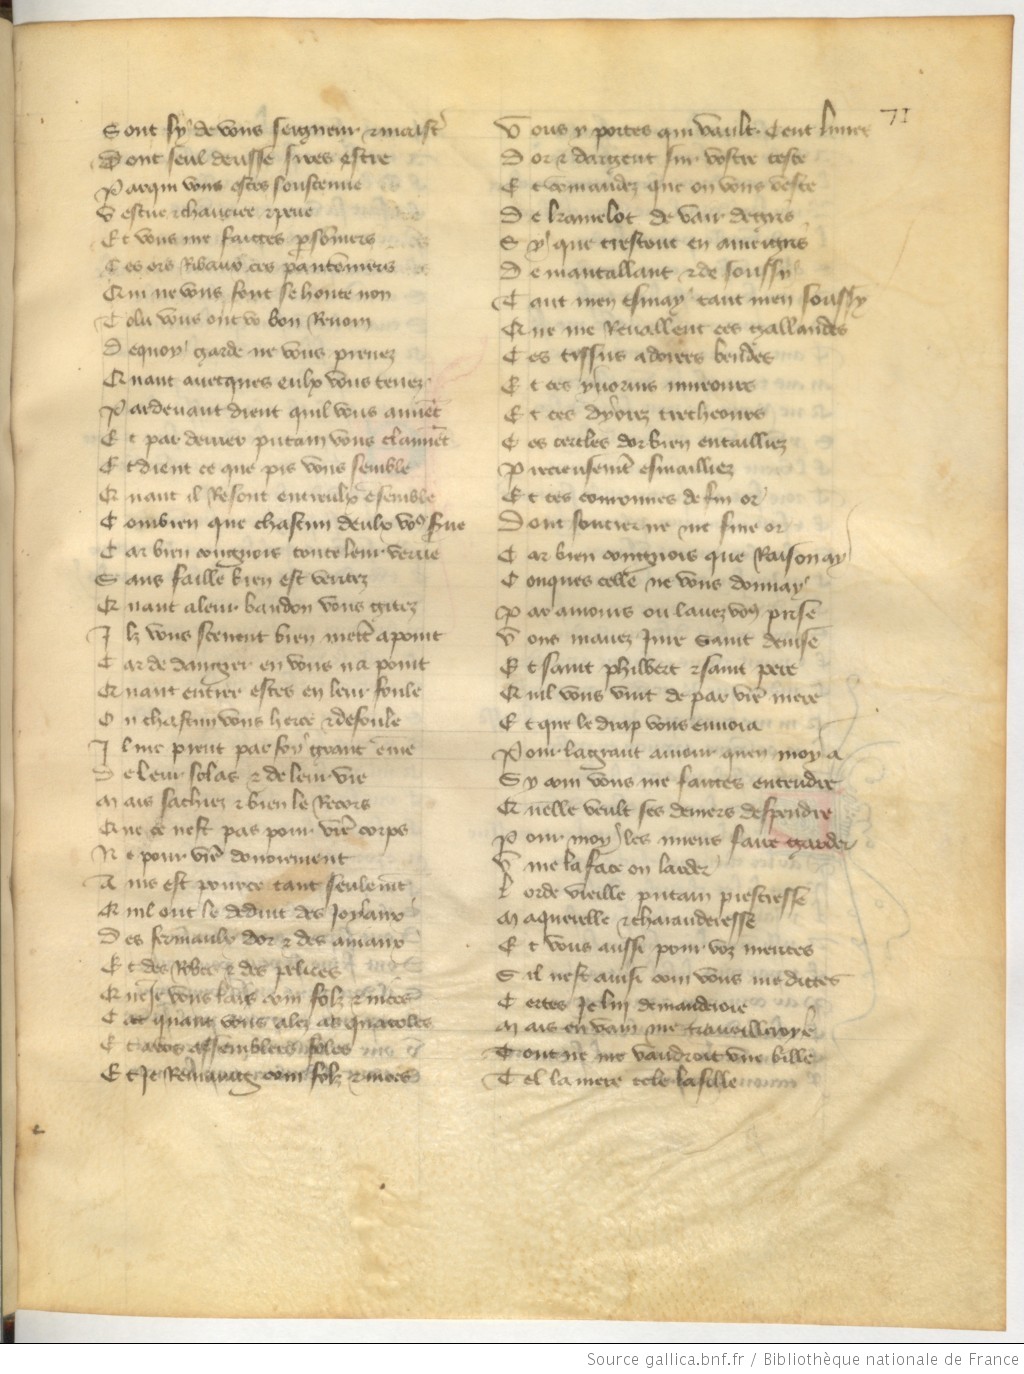 71
Sont sy de vous seigneur & maistr
Dont seul deusse sires estre
Par qui vous estes soustenue
Vestue & chaucee & peue
Et vous me faictes psonniers
Ces ors Ribaux ces pautonniers
Qui ne vous font se honte non
Tolu vous ont vo bon Renom
De quoy garde ne vous prenez
Quant avecques eulx vous tenez
Par devant dient quil vous aiment
Et par derrier putain vous claiment
Et dient ce que pis vous semble
Quant il Resont entreulx esemble
Combien que chascun deulx vo serve
Car bien congnois toute leur verue
Sans faille bien est veritez
Quant a leur bandon vous gitez
Ilz vous scevent bien mettre a point
Car de dangier en vous na point
Quant entree estes en leur foule
Ou chascun vous herce & defoule
Il me prent par foy grant envie
De leur solas & de leur vie
Mais sachiez & bien le Recors
Que ce nest pas pour vre corps
Ne pour vre donoiement
Ains est pource tant seulemt
Quil ont le deduit des Joyaux
Des fermaulx dor & des aniaux
Et des Robes & des pelices
Que Je vous lais com folz & nices
Car quant vous alez as quaroles
Et a vos assemblees foles
Et Je Remaing com folz &
Vous y portes qui vault Cent livres
Dor & dargent sur vostre teste
Et comandez que on vous veste
De kamelot de vair de gris
Sy que trestout en amegris
De mautallant & de soussy
Tant men esmay tant men soussy
Que me Revallent ces gallandes
Ces tissus a dorees bendes
Et ces yvorins mireours
Et ces dyorez trecheours
Ces cercles dor bien entailliez
Precieusemt esmailliez
Et ces couronnes de fin or
Dont soucier ne me fine or
Car bien congnois que Raison ay
Conques celle ne vous donnay
Par amours ou lavez vo prise
Vous mavez Jure saint denise
Et saint philbert & saint pere
Quil vous vint de par vre mere
Et que le drap vous envoia
Pour la grant amour quen moy a
Sy com vous me faictes entendre
Quelle veult ses deniers despendre
Pour moy les miens faire garder
Vive la face on larder
Lorde vieille putain prestresse
Maquerelle & charauderesse
Et vous aussi pour voz merites
Sil nest ainsi com vous me dictes
Certes Je lui demanderoie
Mais en vain me travailleroye
Tout ne me vaudroit vne bille
Tel la mere tele la fille